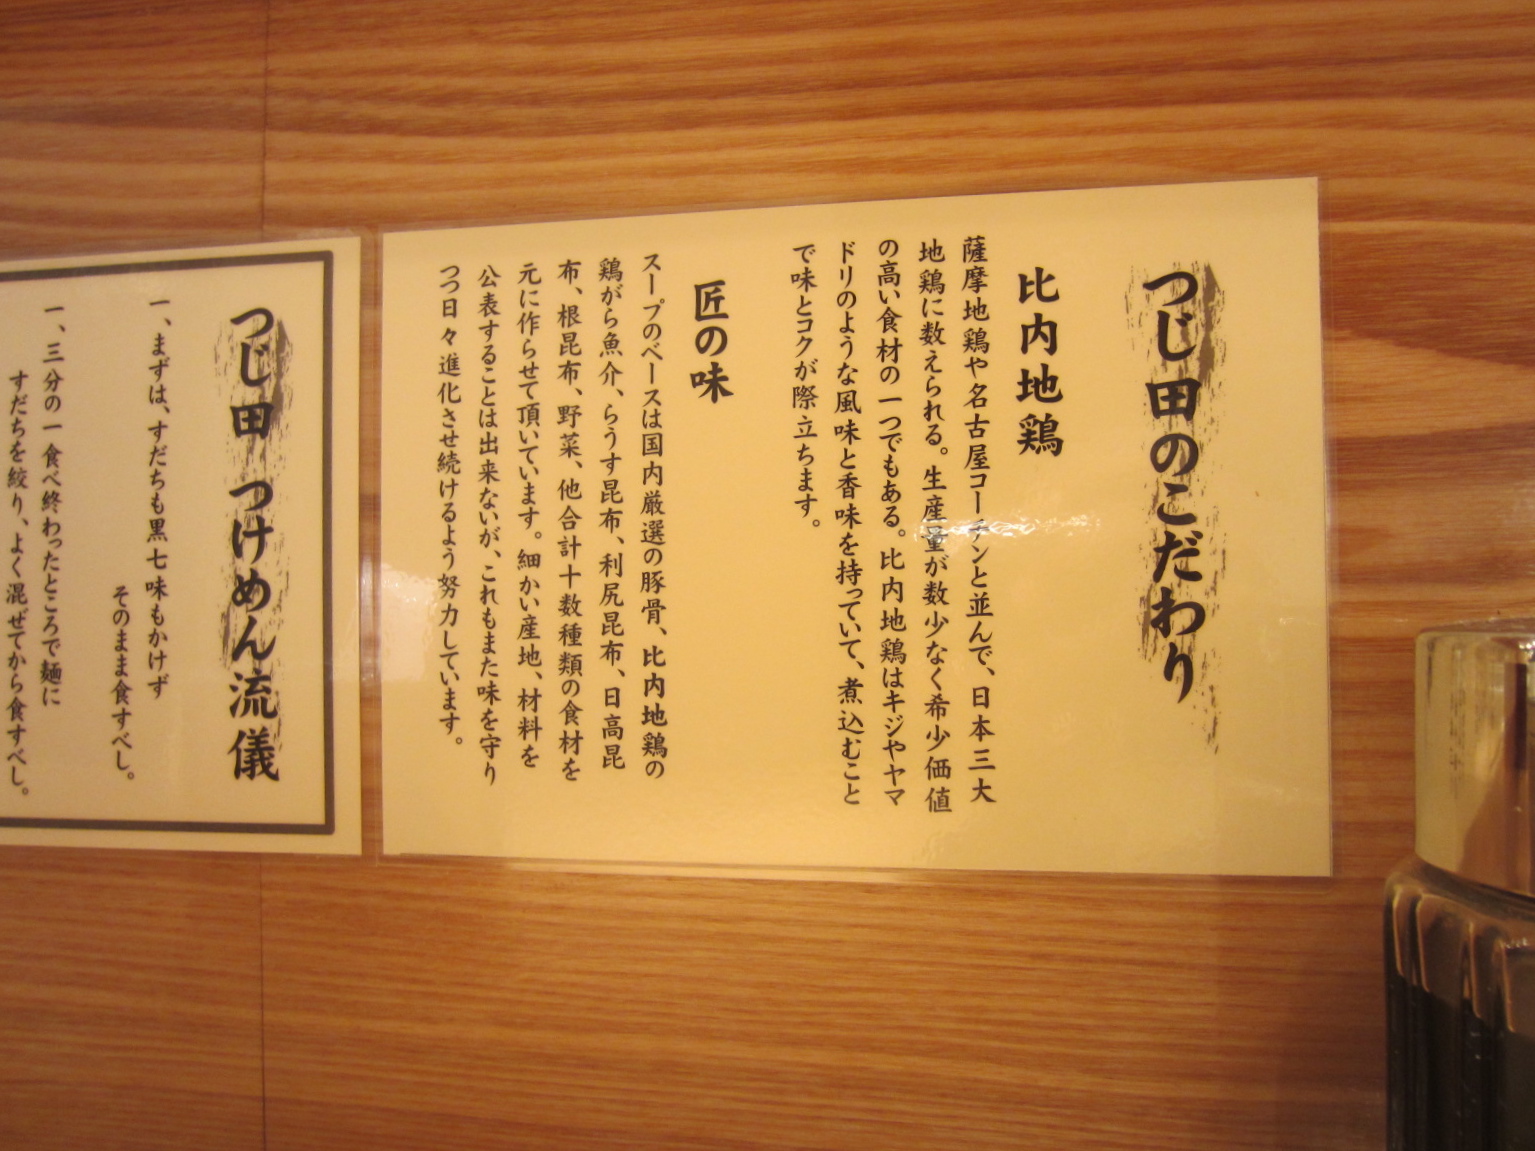 つじ田のこだわり
比内地鶏
薩摩地鶏や名古屋コーチンと並んで、日本三大
地鶏に数えられる。生産量が数少なく希少価値
の高い食材の一つでもある。比内地鶏はキジやヤマ
ドリのような風味と香味を持っていて、煮込むこと
で味とコクが際立ちます。
匠の味
スープのベースは国内厳選の豚骨、比内地鶏の
鶏がら魚介、らうす昆布、利尻昆布、日高昆
布、根昆布、野菜、他合計十数種類の食材を
元に作らせて頂いています。細かい産地、材料を
公表することは出来ないが、これもまた味を守り
つつ日々進化させ続けるよう努力しています。
つじ田 つけめん流儀
一、まずは、すだちも黒七味もかけず
そのまま食すべし。
一、三分の一食べ終わったところで麺に
すだちを絞り、よく混ぜてから食すべし。